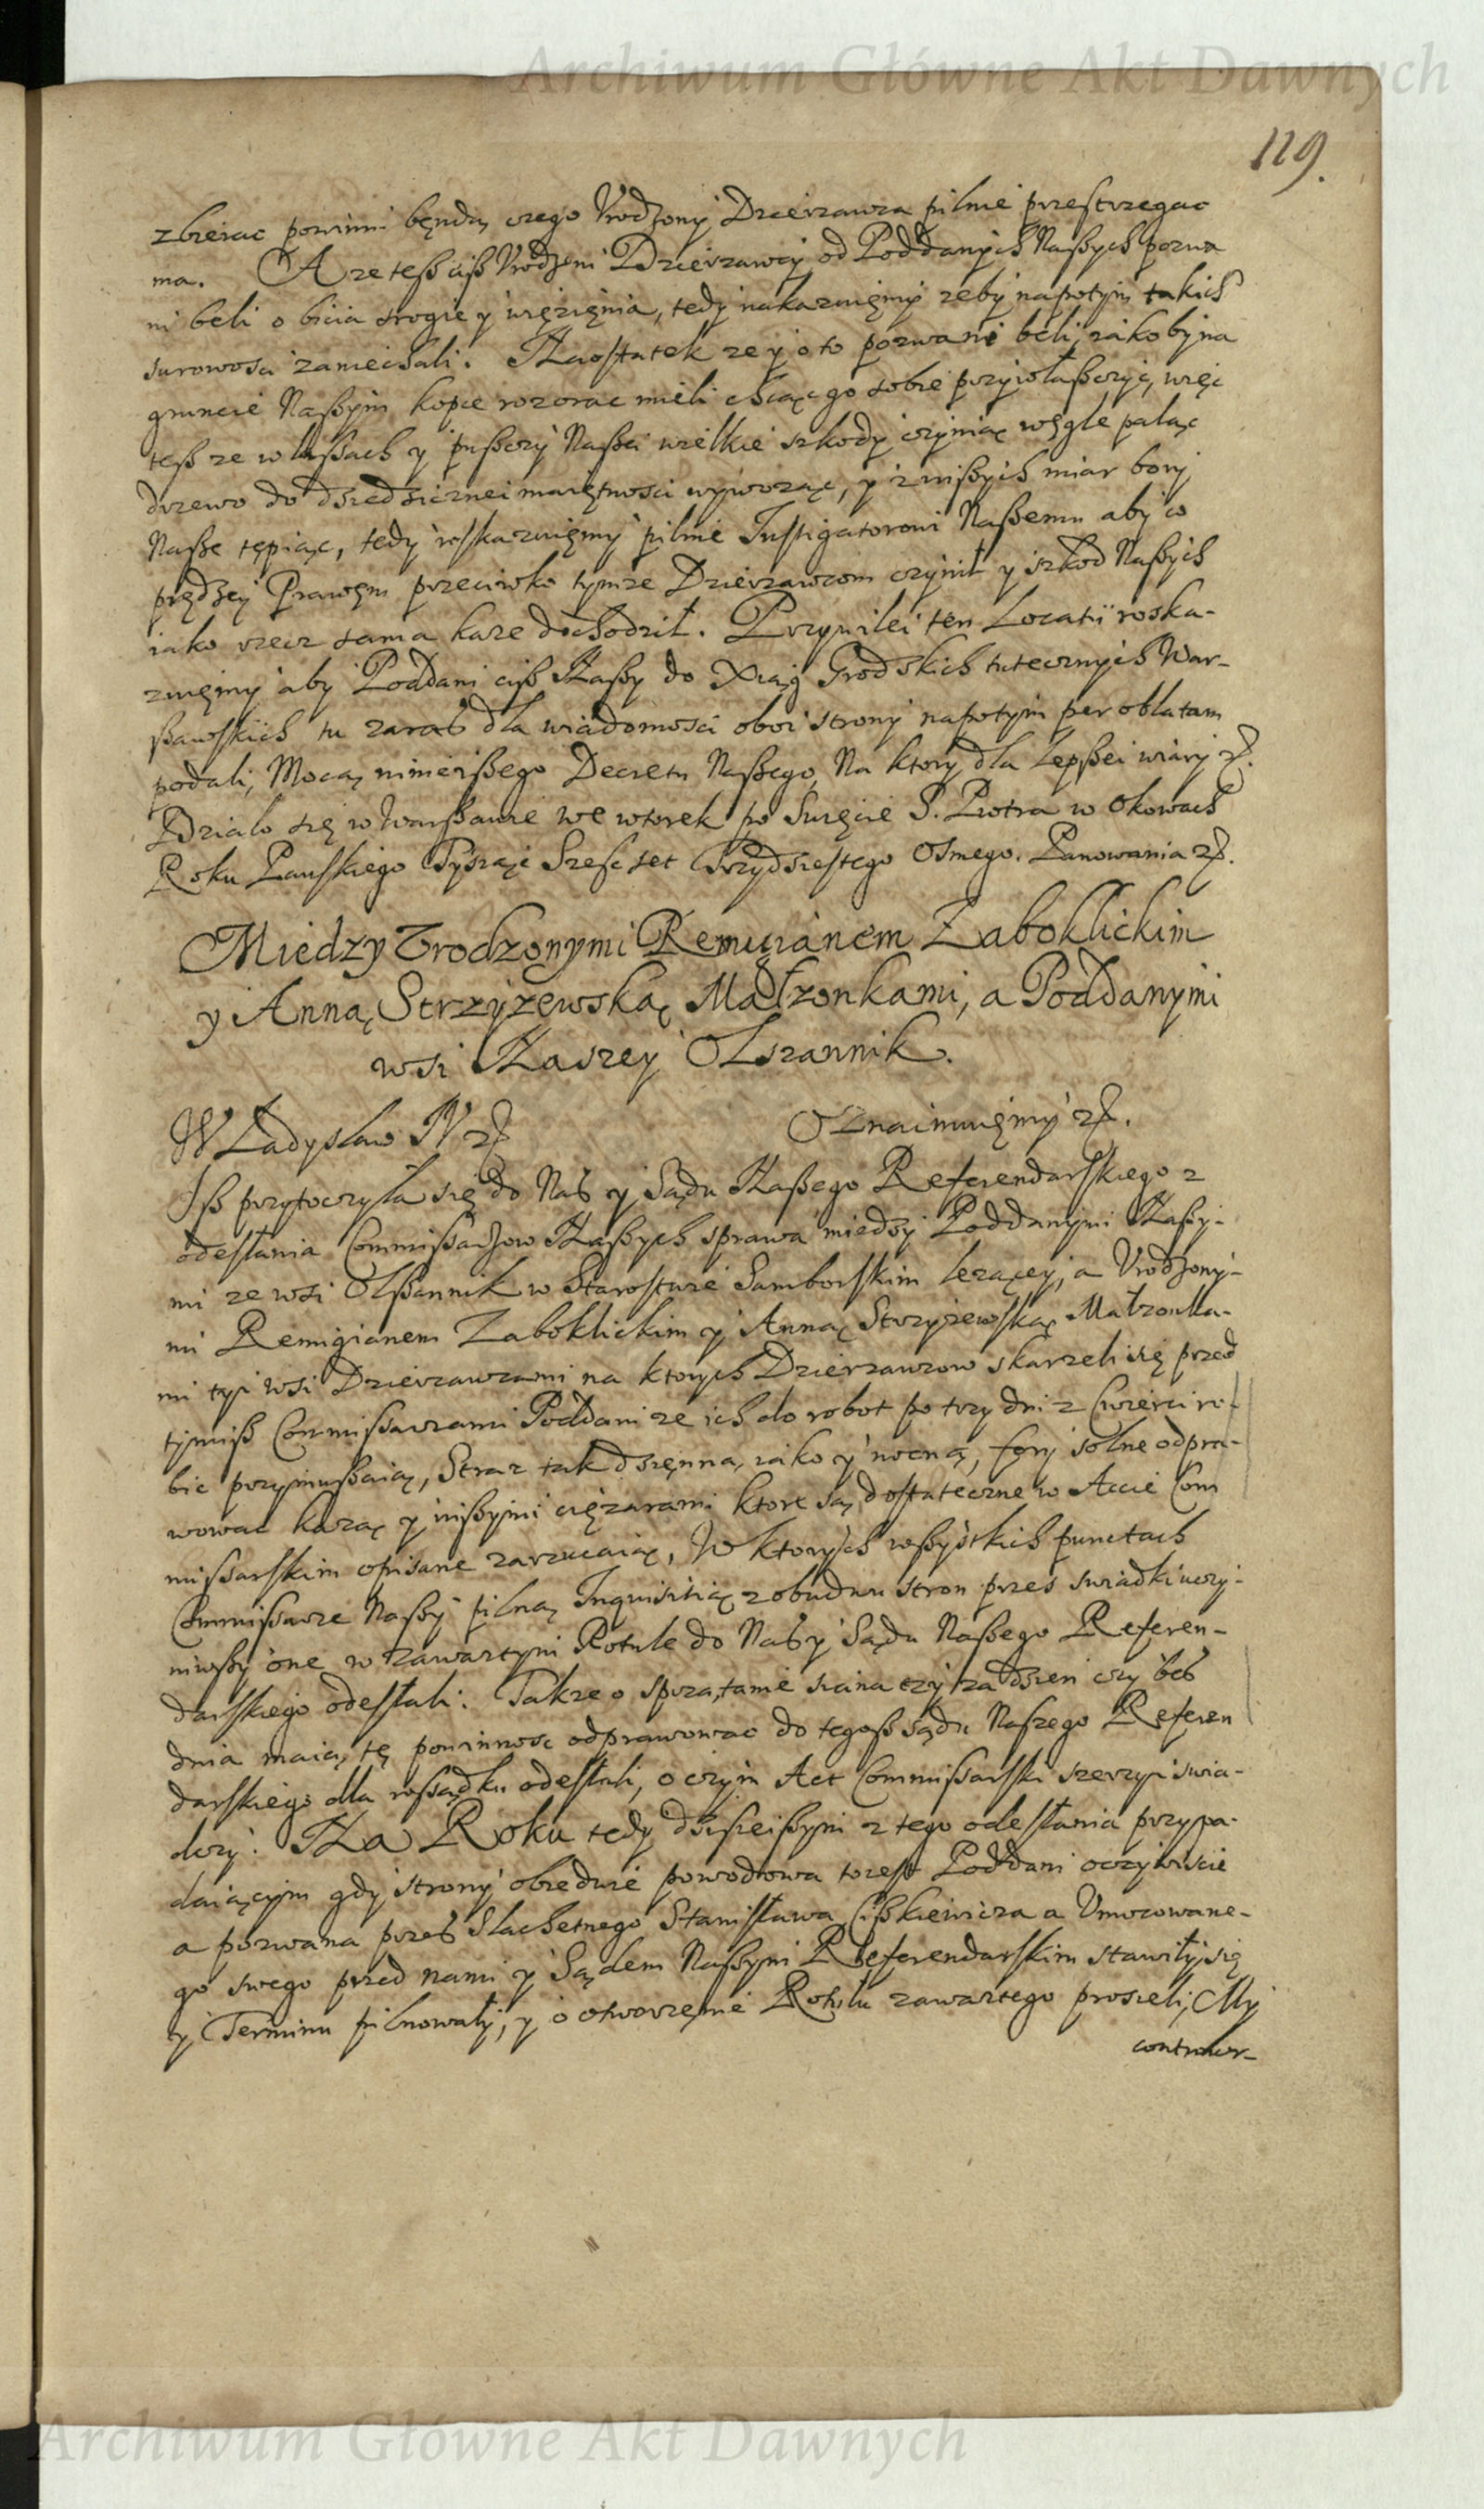 Archiwum Główne Akt Dawnych
119.
zbierac powinni będą, czego Vrodzony Dzierzawca pilnie przestrzegac
ma. A ze teß ciß Vrodzeni Dzierzawcy od Poddanych Naßych pozwa
ni beli o bicia srogie y więzięnia, tedy nakazuięmy zeby napotym takich
surowosci zaniechali. Naostatek ze y o to pozwani beli, iakoby na
gruncie Naßym kopce rozorac mieli chcąc go sobie przywłaßczyc, więc
teß ze w laßach y pußczy Naßei wielkie szkody czyniąc węgle paląc
drzewo do dziedzicznei maiętnosci wywożąc, y z inßych miar bory
Naße tępiąc, tedy roskazuięmy pilnie Instigatorowi Naßemu aby co
prędzey Prawęm przeciwko tymze Dzierzawcom czynił y szkod Naßych
iako rzecz sama kaze dochodził. Przywilei ten Locatii roska-
zuięmy aby Poddani ciß Naßy do Xiąg Grodskich tutecznych War-
ßawskich tu zaraß dla wiadomosci oboi strony napotym per oblatam
podali, Mocą ninieißego Decretu Naßego, Na ktory dla lepßei wiary etc.
Działo się w Warßawie we wtorek po Swięcie S. Piotra w Okowach
Roku Panskiego Tysiąc Szesc set Trzydziestego Osmego. Panowania etc.
Miedzy Vrodzonymi Remigianem Zaboklickim
y Anną Strzyzewską Małzonkami, a Poddanymi
wsi Naszey Olszannik.
Władysław IV etc. Oznaimuięmy etc.
Iß przytoczyła się do Naß y Sądu Naßego Referendarskiego z
odesłania Commissarzow Naßych sprawa miedzy Poddanymi Naßy-
mi ze wsi Olßannik w Starostwie Samborskim lezącey, a Vrodzony-
mi Remigianem Zaboklickim y Anną Strzyzewską Małzonka-
mi tyi wsi Dzierzawcami na ktorych Dzierzawcow skarzeli się przed
tymiß Commissarzami Poddani ze ich do robot po trzy dni z Cwierci ro-
bic przymußaią, Straz tak dzięnną, iako y nocną, fory solne odpra-
wowac kazą y inßymi cięzarami ktore są dostateczne w Accie Com
missarskim opisane zarzucaią, W ktorych wßystkich punctach
Commissarze Naßy pilną Inquisitią z obudwu stron przes swiadki uczy-
niwßy one w zawartym Rotule do Naß y Sądu Naßego Referen-
darskiego odesłali. Takze o sprzątanie siana czy za dzien czy beß
dnia maią tę powinnosc odprawowac do tegoß sądu Naszego Referen
darskiego dla rossądku odesłali, o czym Act Commissarski szerzyi swia-
dczy. Na Roku tedy dzisieißym z tego odesłania przypa-
daiącym gdy strony obiedwie powodowa to iest Poddani oczywiscie
a pozwana przeß Slachetnego Stanisława Cißkiewicza a Vmocowane-
go swego przed nami y Sądem Naßym Referendarskim stawiły się
y Terminu pilnowały, y o otworzęnie Rotulu zawartego prosieli, My
controver-
Archiwum Główne Akt Dawnych